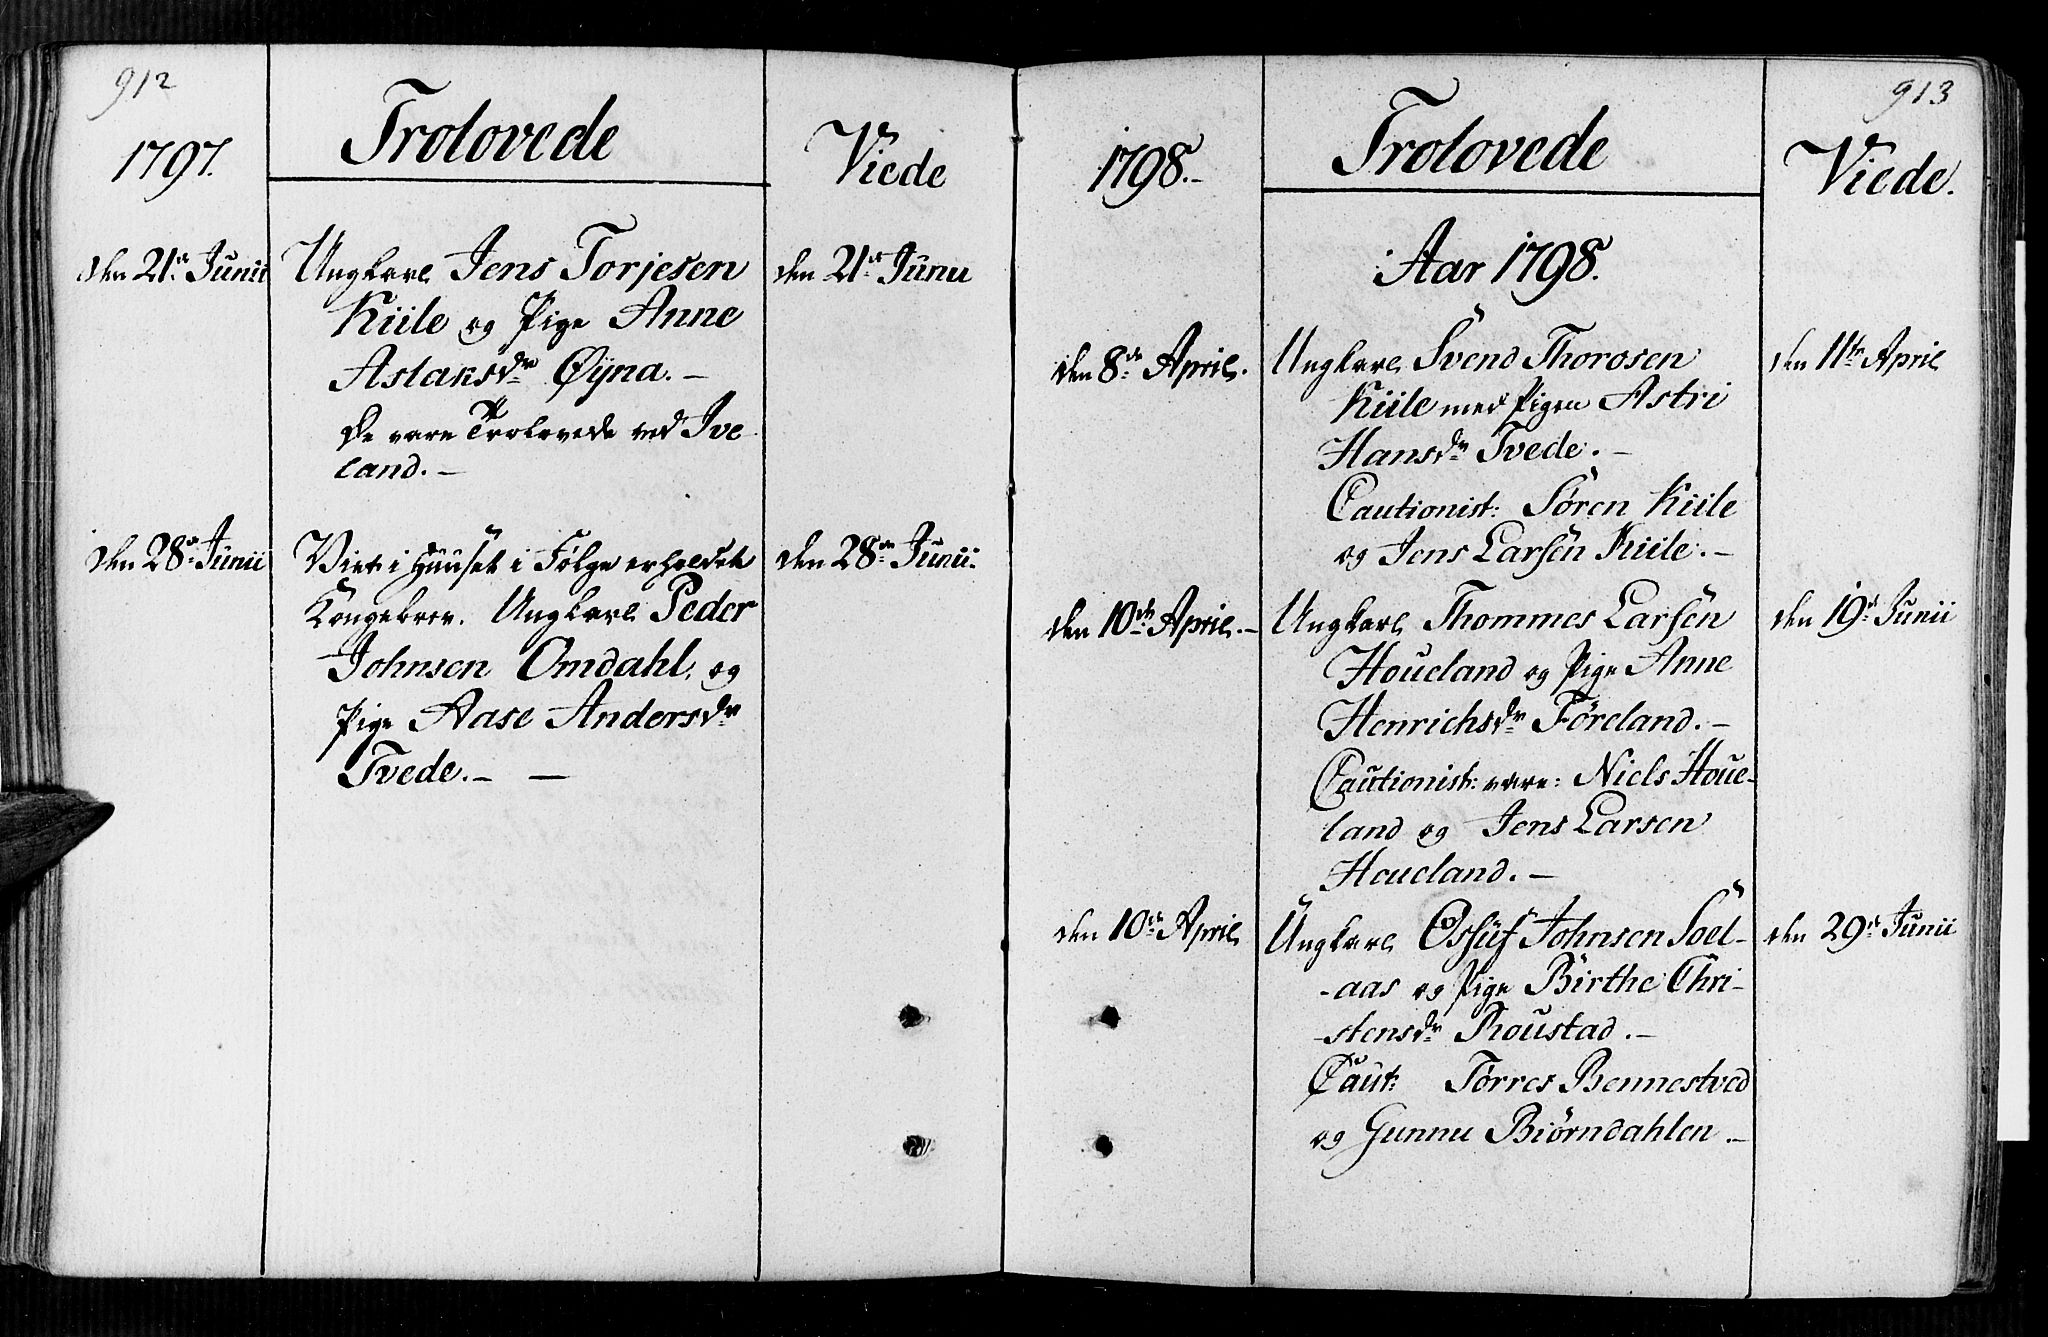 912
1797.
Trolovede
Viede
den 21de Junii
Ungkarl Jens Torjesen
Kiile og Pige Anne
Aslaksdr Øÿna. —
De vare Trolovede ved Ive
land. —
den 21de Junii
den 28de Junii
Viet i Huuset i Følge erholdet
Kongebrev. Ungkarl Peder
Johnsen Omdahl, og
Pige Aase Andersdr
Tvede. — —
den 28de Junii.
913
1798. -
Trolovede
Viede.
Aar 1798.
den 8de April.
Ungkarl Svend Thorosen
Kiile med Pigen Astri
Hansdr Tvede. —
Cautionist: Søren Kiile
og Jens Larsen Kiile. —
den 11te April
den 10de April. —
Ungkarl Thommes Larsen
Houeland og Pige Anne
Henrichsdr Føreland. —
Cautionist: vare: Niels Houe-
land og Jens Larsen
Houeland. —
den 19de Junii
den 10de April
Ungkarl Ossuf Johnsen Soel-
-aas og Pige Birthe Chri-
-stensdr Roustad. —
Caut: Torres Bennestved
og Gunnu Biørndahlen. —
den 29de Junii